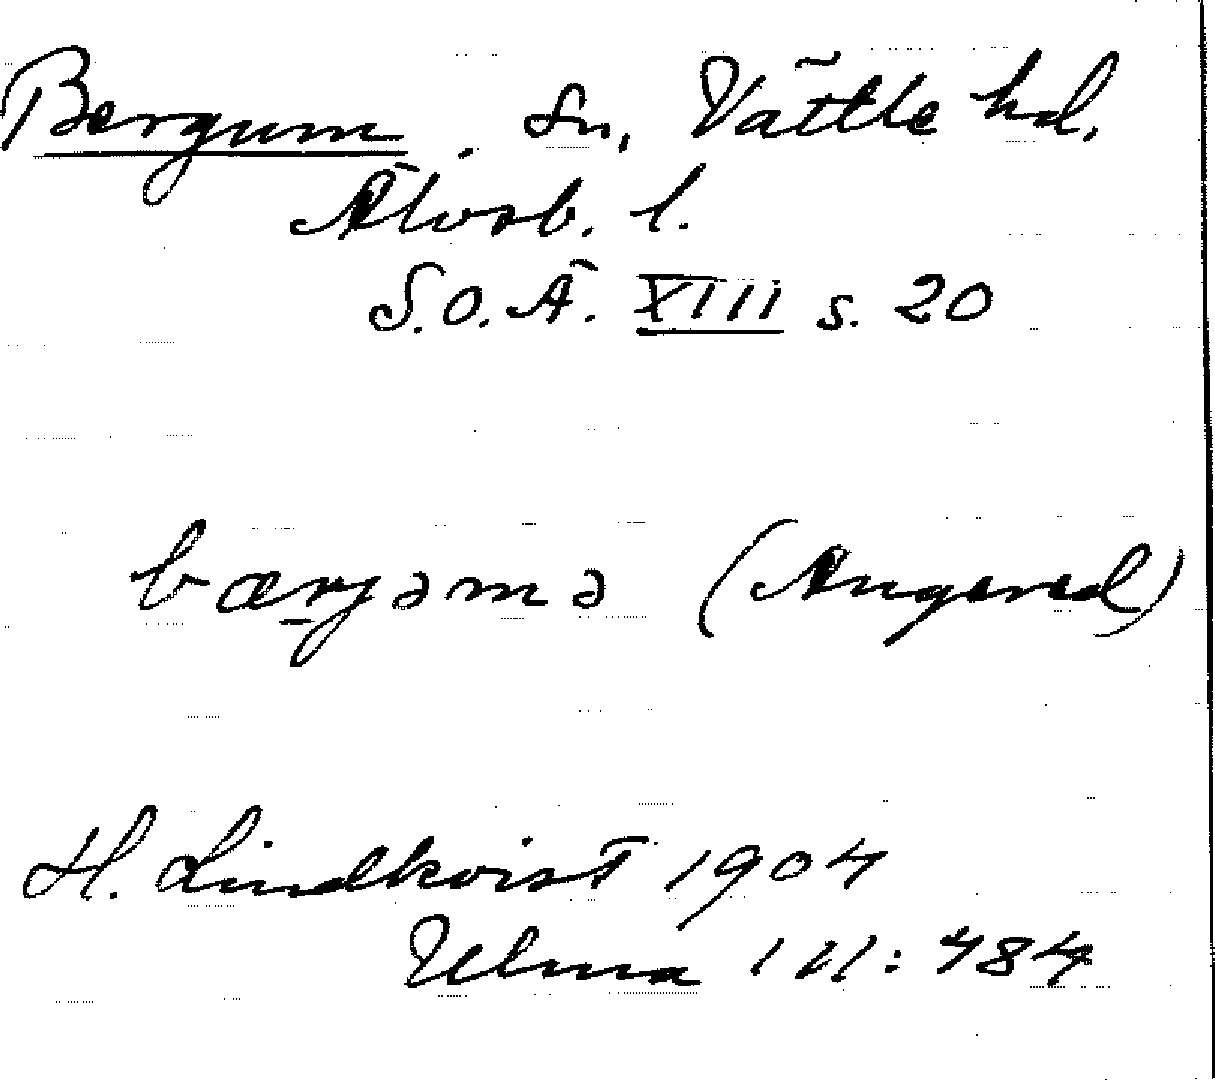 Bergum. Sn, Vättle hd.
Älvsb. l.
S.O.Ä. XIII s. 20
bærjəmə (Angered)
H. Lindkvist 1904
Ulma 111:484